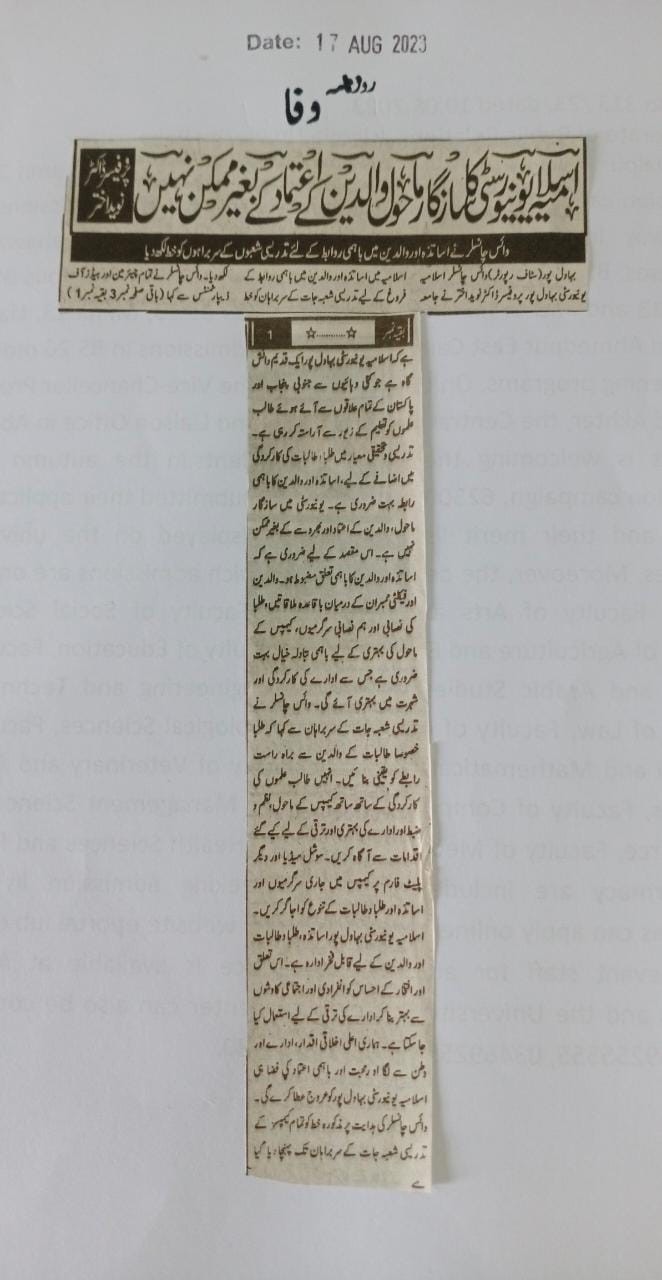 Date: 17 AUG 2023
روزنامہ
وفا
اسلامیہ یونیورسٹی کا سازگار ماحول والدین کے اعتماد کے بغیر ممکن نہیں
پروفیسر ڈاکٹر
نوید اختر
وائس چانسلر نے اساتذہ اور والدین میں باہمی روابط کے لئے تدریسی شعبوں کے سربراہوں کو خط لکھ دیا
بہاول پور (سٹاف رپورٹر) وائس چانسلر اسلامیہ
یونیورسٹی بہاول پور پروفیسر ڈاکٹر نوید اختر نے جامعہ
اسلامیہ میں اساتذہ اور والدین میں باہمی روابط کے
فروغ کے لیے تدریسی شعبہ جات کے سربراہان کو خط
لکھ دیا۔ وائس چانسلر نے تمام چیئرمین اور ہیڈز آف
ڈیپارٹمنٹس سے کہا (باقی صفحہ نمبر 3 بقیہ نمبر 1)
بقیہ نمبر ☆............☆ 1
ہے کہ اسلامیہ یونیورسٹی بہاول پور ایک قدیم دانش
گاہ ہے جو کئی دہائیوں سے جنوبی پنجاب اور
پاکستان کے تمام علاقوں سے آئے ہوئے طالب
علموں کو تعلیم کے زیور سے آراستہ کر رہی ہے۔
تدریسی و تحقیقی معیار میں طلبا و طالبات کی کارکردگی
میں اضافے کے لیے، اساتذہ اور والدین کا باہمی
رابطہ بہت ضروری ہے۔ یونیورسٹی میں سازگار
ماحول، والدین کے اعتماد اور بھروسے کے بغیر ممکن
نہیں ہے۔ اس مقصد کے لیے ضروری ہے کہ
اساتذہ اور والدین کا باہمی تعلق مضبوط ہو۔ والدین
اور فیکلٹی ممبران کے درمیان باقاعدہ ملاقاتیں، طلبا
کی نصابی اور ہم نصابی سرگرمیوں، کیمپس کے
ماحول کی بہتری کے لیے باہمی تبادلہ خیال بہت
ضروری ہے جس سے ادارے کی کارکردگی اور
شہرت میں بہتری آئے گی۔ وائس چانسلر نے
تدریسی شعبہ جات کے سربراہان سے کہا کہ طلبا
خصوصا طالبات کے والدین سے براہ راست
رابطے کو یقینی بنائیں۔ انہیں طالب علموں کی
کارکردگی کے ساتھ ساتھ کیمپس کے ماحول، نظم و
ضبط اور ادارے کی بہتری اور ترقی کے لیے کیے گئے
اقدامات سے آگاہ کریں۔ سوشل میڈیا اور دیگر
پلیٹ فارم پر کیمپس میں جاری سرگرمیوں اور
اساتذہ اور طلبا و طالبات کے تنوع کو اجاگر کریں۔
اسلامیہ یونیورسٹی بہاول پور اساتذہ، طلبا و طالبات
اور والدین کے لیے قابل فخر ادارہ ہے۔ اس تعلق
اور افتخار کے احساس کو انفرادی اور اجتماعی کاوشوں
سے بہتر بنا کر ادارے کی ترقی کے لیے استعمال کیا
جا سکتا ہے۔ ہماری اعلی اخلاقی اقدار، ادارے اور
وطن سے لگاو اور محبت اور باہمی اعتماد کی فضا ہی
اسلامیہ یونیورسٹی بہاول پور کو عروج عطا کرے گی۔
وائس چانسلر کی ہدایت پر مذکورہ خط کو تمام کیمپسز کے
تدریسی شعبہ جات کے سربراہان تک پہنچا دیا گیا
ہے